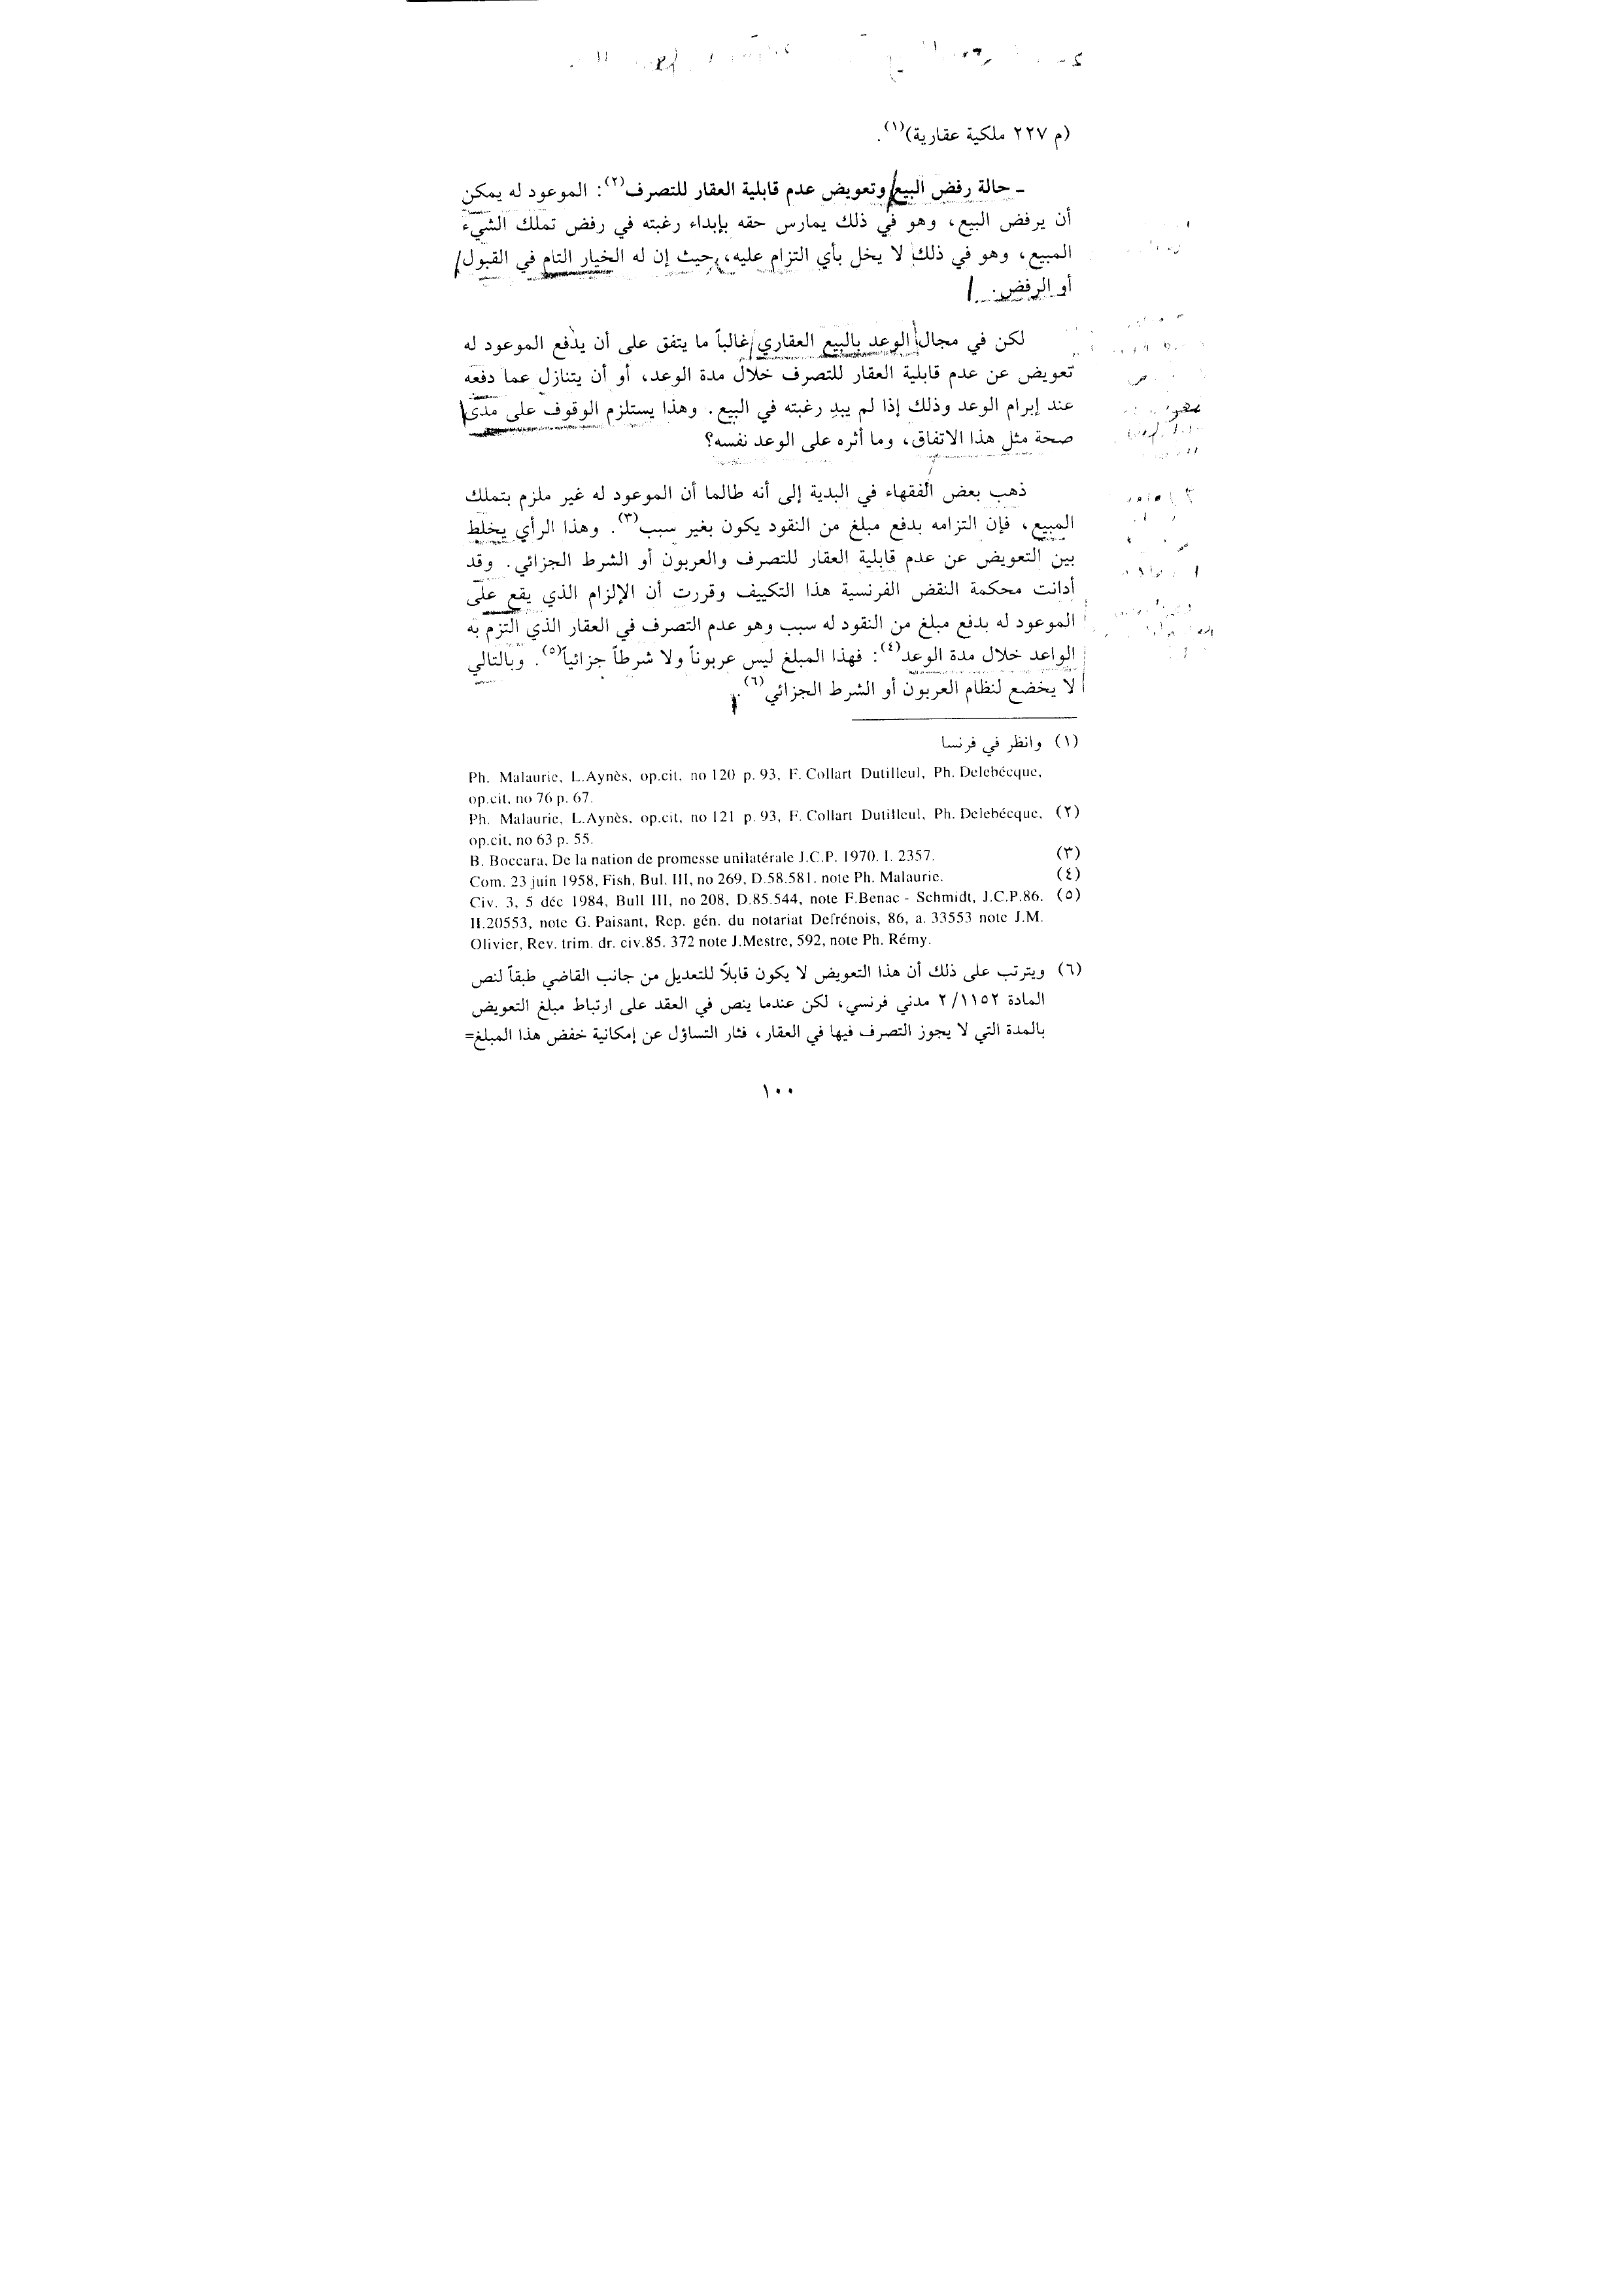 (م ٢٢٧ ملكية عقارية)(١).
ـ حالة رفض البيع وتعويض عدم قابلية العقار للتصرف(٢): الموعود له يمكن
أن يرفض البيع، وهو في ذلك يمارس حقه بإبداء رغبته في رفض تملك الشيء
المبيع، وهو في ذلك لا يخل بأي التزام عليه، حيث إن له الخيار التام في القبول
أو الرفض.
لكن في مجال الوعد بالبيع العقاري غالباً ما يتفق على أن يدفع الموعود له
تعويض عن عدم قابلية العقار للتصرف خلال مدة الوعد، أو أن يتنازل عما دفعه
عند إبرام الوعد وذلك إذا لم يبدِ رغبته في البيع. وهذا يستلزم الوقوف على مدى
صحة مثل هذا الاتفاق، وما أثره على الوعد نفسه؟
ذهب بعض الفقهاء في البدية إلى أنه طالما أن الموعود له غير ملزم بتملك
المبيع، فإن التزامه بدفع مبلغ من النقود يكون بغير سبب(٣). وهذا الرأي يخلط
بين التعويض عن عدم قابلية العقار للتصرف والعربون أو الشرط الجزائي. وقد
أدانت محكمة النقض الفرنسية هذا التكييف وقررت أن الإلزام الذي يقع على
الموعود له بدفع مبلغ من النقود له سبب وهو عدم التصرف في العقار الذي التزم به
الواعد خلال مدة الوعد(٤): فهذا المبلغ ليس عربوناً ولا شرطاً جزائياً(٥). وبالتالي
لا يخضع لنظام العربون أو الشرط الجزائي(٦).
(١) وانظر في فرنسا
Ph. Malaurie, L.Aynès, op.cit, no 120 p. 93, F. Collart Dutilleul, Ph. Delebécque,
op.cit, no 76 p. 67.
(٢) Ph. Malaurie, L.Aynès, op.cit, no 121 p. 93, F. Collart Dutilleul, Ph. Delebécque,
op.cit, no 63 p. 55.
(٣) B. Boccara, De la nation de promesse unilatérale J.C.P. 1970. I. 2357.
(٤) Com. 23 juin 1958, Fish, Bul. III, no 269, D.58.581. note Ph. Malaurie.
(٥) Civ. 3, 5 déc 1984, Bull III, no 208, D.85.544, note F.Benac - Schmidt, J.C.P.86.
II.20553, note G. Paisant, Rep. gén. du notariat Defrénois, 86, a. 33553 note J.M.
Olivier, Rev. trim. dr. civ.85. 372 note J.Mestre, 592, note Ph. Rémy.
(٦) ويترتب على ذلك أن هذا التعويض لا يكون قابلاً للتعديل من جانب القاضي طبقاً لنص
المادة ٢/١١٥٢ مدني فرنسي، لكن عندما ينص في العقد على ارتباط مبلغ التعويض
بالمدة التي لا يجوز التصرف فيها في العقار، فثار التساؤل عن إمكانية خفض هذا المبلغ=
١٠٠